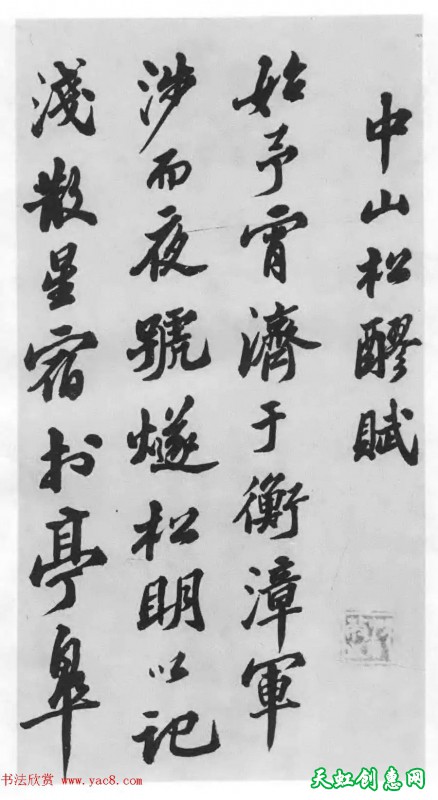 中山松醪賦
始予宵濟于衡漳軍
涉而夜號燧松明以記
淺散星宿於亭皋
书法欣赏 www.yac8.com
天虹创惠网